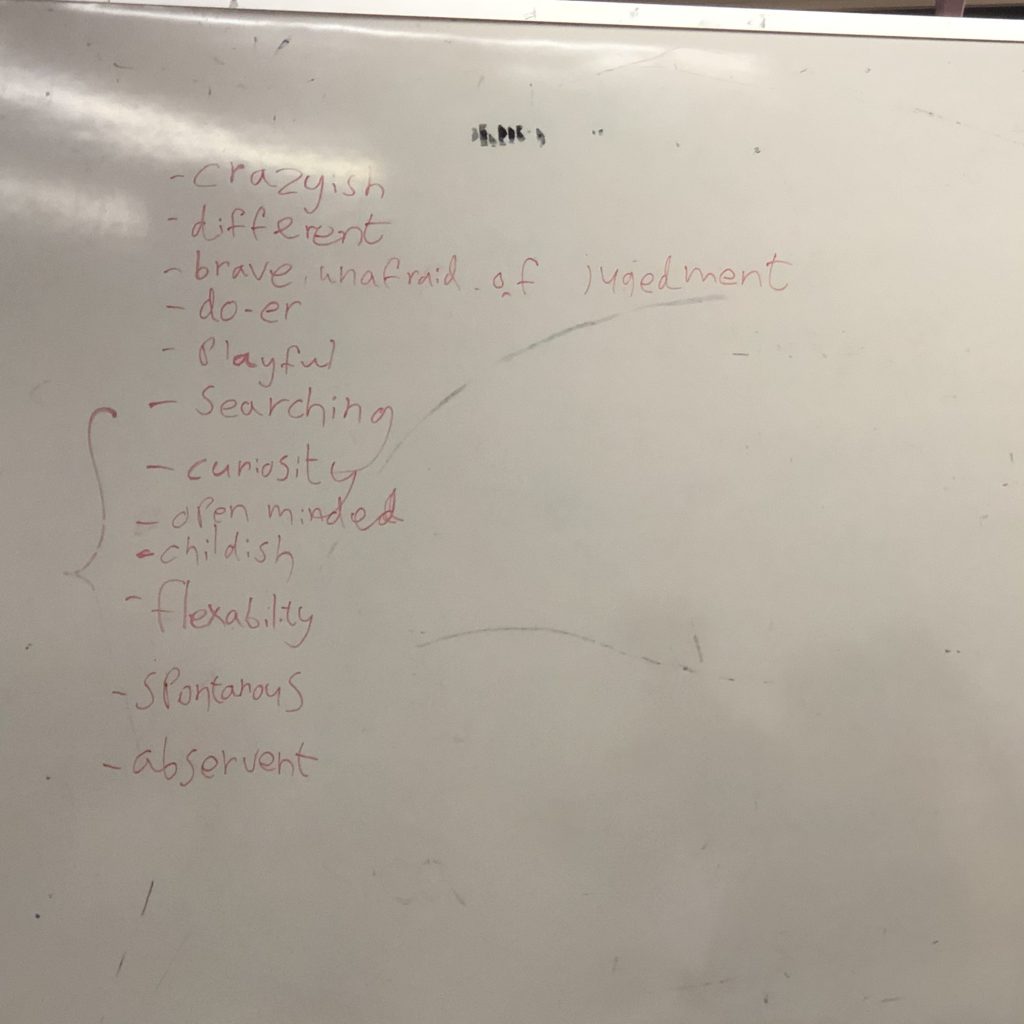 - crazyish
- different
- brave, unafraid of jugedment
- do-er
- Playful
- Searching
- curiosity
- open minded
- childish
- flexability
- Spontanous
- abservent